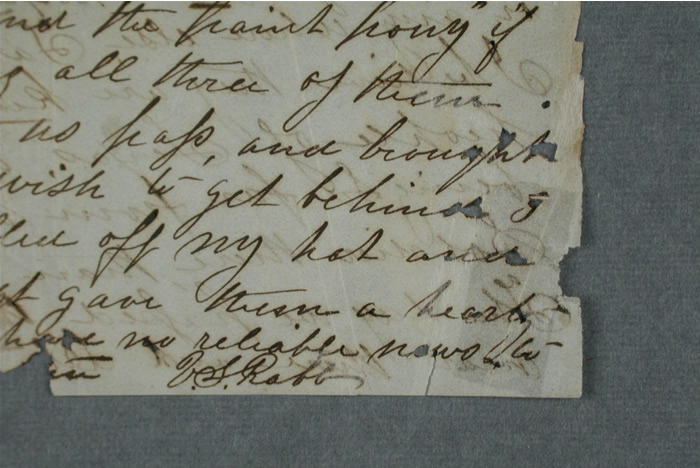 and the paint pony" if
all three of them.
no pass, and brought
wish to get behind
off my hat and
gave them a heart
have no reliable news to
V.S. Rabb